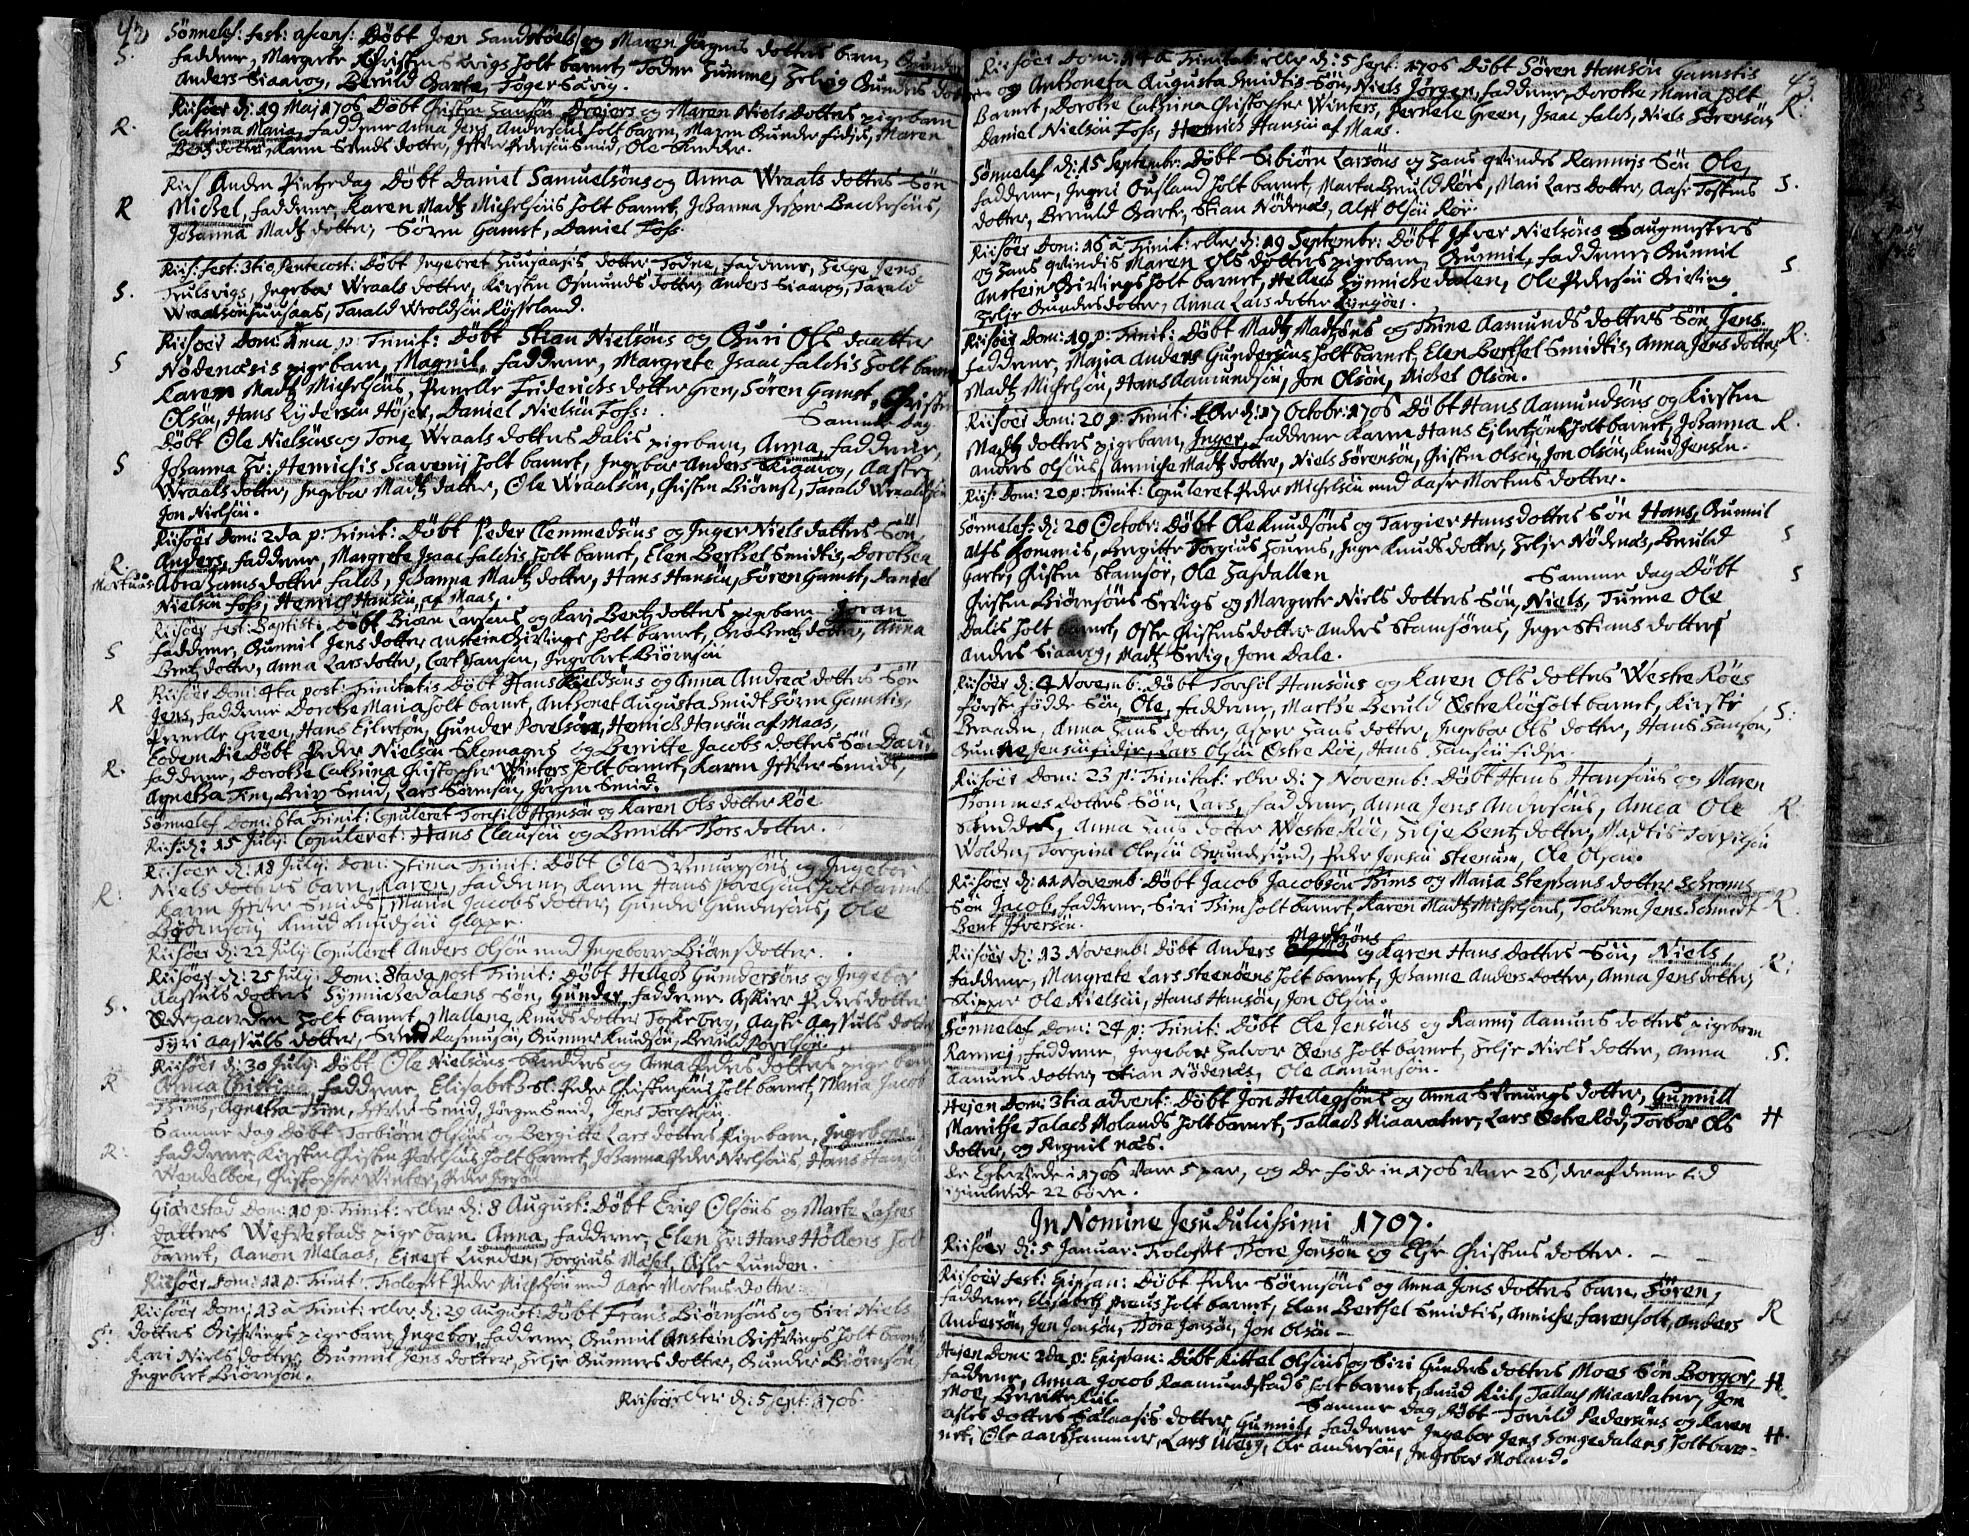 42
Sønnelef: fest: ascens: Døbt Joen Sandtøels og Maren Jørgens dotters barn, Gunder
S. faddrene, Margrete Christen Sevigs holt barnet, Todne Humme, Helvig Gunders dotter
Anders Siaavog, Beruld Garte, Tøger Sævig.
Riisøer d: 19 Maj 1706 Døbt Christen Hansøn Drejers og Maren Niels dotters pigebarn
R. Cathrina Maria, faddrene Anna Jens Andersøns holt barnet, Maren Gunder fidjes, Maren
Bentz dotter, Karen Svends dotter, Jffver Pedersøn Smid, Ole Skredder.
Riis Anden Pintzedag Døbt Daniel Samuelsøns og Anna Wraals dotters Søn
R Michel, faddrene, Karen Madtz Michelsøns holt barnet, Johanna Jesper Beckersøns,
Johanna Madtz dotter, Sørren Gamst, Daniel Fohs.
Riis: fest: 3tio Pentecost: Døbt Ingebret Huusaasis dotter Todne, faddrene, Helge Jens
S. Trulsvigs, Ingebor Wraals dotter, Kirsten Osmunds dotter, Anders Siaavog, Tarald
Wraalsøn Huusaas, Tarald Wroldsøn Røsseland.
Riisøer Dom: 1ma p: Trinit: Døbt Stian Nielsøns og Guri Ols daatter
S Nødenæsis pigebarn, Magnil, faddrene, Margrete Isaac falchis holt barnet
Karen Madtz Michelsøns, Pernelle Friderichs dotter Gren, Søren Gamst, Christen
Olsøn, Hans Rydersøn Højer, Daniel Nielsøn Fohs: Samme Dag
Døbt Ole Nielsøns og Tone Wraals dotters Dalis pigebarn, Anna, faddrene,
S Johanna Hr: Henrichis Scavenij holt barnet, Ingebor Anders Siaavog, Aaste
Wraals dotter, Ingebor Madtz dotter, Ole Wraalsøn, Christen Biørnsl, Tarald Wraaldsøn
Jon Nielsøn.
Riisøer Dom: 2da p: Trinit: Døbt Peder Clemmedsøns og Inger Niels datters Søn
R. Anders, faddrene, Margrete Isaac falchis holt barnet, Elen Berthel Smidtis, Dorothea
Mortuus Abrahams dotter falch, Johanna Madtz dotter, Hans Hansøn, Søren Gamst, Daniel
Nielsøn Fohs, Henrich Hansøn af Maas.
Riisøer fest: Baptist: Døbt Biørn Larsøns og Kari Bentz dotters pigebarn Joran
faddrene, Gunnil Jens dotter anstein Givings holt barnet, Gro Bentz dotter, Anna
S Bentz dotter, Anna Lars dotter, Cort Hansøn, Ingebret Biørnsøn
Riisøer Dom: 4ta post: Trinitatis Døbt Hans Kieldsøns og Anna Andreæ dotters Søn
R Jens, faddrene Dorothe Maria holt barnet, Anthonet Augusta Smidt Sørren Gamstis,
Pernelle Green, Hans Ejlertsøn, Gunder Povelsøn, Henrich Hansøn af Maas,
Eodem Die Døbt Peder Nielsøn Skomagers og Berritte Jacobs dotters Søn David
R. faddrene, Dorothe Cathrina Christopher Winters holt barnet, Karen Jffver Smids,
Agnetha Tim, Brix Smid, Lars Sørensøn, Jørgen Smid.
Sønnelef Dom: 6ta Trinit: Copuleret Torchild Hansøn og Karen Ols dotter Røe
Riis: d: 15 July: Copuleret: Hans Clausøn og Berritte Thors dotter.
Riisøer d: 18 July: Dom: 7tima Trinit: Døbt Ole Svenungsøns og Ingebor
R: Niels dotters barn, Karen, faddrene, Karen Hans Povelsøns holt barnet
Karen Jffver Smids, Maria Jacobs dotter, Gunder Gundersøns, Ole
Biørnsøn, Knud Knudsøn Gloppe.
Riisøer d: 22 July Copuleret Anders Olsøn med Ingeborre Biørns dotter.
Riisøer d: 25 July: Dom: 8tava post Trinit: Døbt Hellech Gundersøns og Ingebor
Aassuls dotters Synnichedalens Søn, Gunder, faddrene, Askier Peders dotter
S. Ødegaarden holt barnet, Mallene Knuds dotter Foskeberg, Aaste Aassuls dotter
Tyri Aassuls dotter, Svend Rasmusøn, Gunner Knudsøn, Beruld Povelsøn.
Riisøer d: 30 July: Døbt Ole Nielsøns Skredders og Anna Peders dotters pige barn
R Anna Christina, faddrene, Elisabeth Sl: Peder Christensøns holt barnet, Maria Jacob
Thims, Agnetha Thim, Jffver Smid, Jørgen Smid, Jens Torchelsøn.
Samme dag Døbt Torbiørn Olsøns og Bergitte Lars dotters Pigebarn, Ingeborre
R. faddrene, Kirsten Christen Povelsøns holt barnet, Johanna Peder Nielsøns, Hans Hansøn
Wendelboe, Christopher Winter, Peder Jensøn
Giærestad Dom: 10 p: Trinit: eller d: 8 August: Døbt Erich Olsøns og Marte Lasses
g. datters Wefrestads pige barn Anna, faddrene, Elen Hr: Hans Høllens holt
barnet, Aanon Melaas, Ejnert Lunden, Torgius Mosel, Asle Lunden.
Riisøer Dom: 11 p: Trinit: Troloft Peder Michelsøn med Aase Mortens dotter.
Riisøer Dom: 13 a Trinit: eller d: 29 august: Døbt Frans Biørnsøns og Siri Niels
S: dotters Giffvings pigebarn Ingebor, faddrene, Gunnil Anstein Giffvings holt barnet
Kari Niels dotter, Gunnil Jens dotter, Helje Gunners dotter, Gunder Biørnsøn,
Ingebret Biørnsøn.
Riisøer eller d: 5 Sept: 1706
43
Riisøer Dom: 14 a Trinitat: eller d: 5 Sept: 1706 Døbt Søren Hansøn Gamstis
og Anthoneta Augusta Smidtis Søn, Niels Jørgen, faddrene, Dorothe Maria holt
Barnet, Dorothe Cathrina Christopher Winters, Pernele Green, Isaac falch, Niels Sørensøn, R.
Daniel Nielsøn Fohs, Henrich Hansøn af Maas.
Sønnelef d: 15 Septembr: Døbt Sibiørn Larsøns og Hans qvindes Rannejs Søn Ole,
faddrene, Ingri Ousland holt barnet, Marta Beruld Røes, Mari Lars dotter, Aase Tostens S.
dotter, Beruld Garte, Stian Nødenæs, Alff Olsøn Røe.
Riisøer Dom: 16 a Trinit: eller d: 19 Septembr: Døbt Jffver Nielsøns Saugmesters
og Hans qvindis Maren Ols dotters pigebarn, Gunnil, faddrene, Gunnil S
Anstein Givings holt barnet, Hellech Synnichedalen, Ole Pedersøn Giving
Helje Gunders dotter, Anna Lars dotter Lyngøer.
Riisøer Dom: 19 p: Trinit: Døbt Madtz Madtzøns og Thrine Aamunds dotters Søn Jens.
faddrene, Maria Anders Gundersøns holt barnet, Elen Berthel Smidtis, Anna Jens dotter, R.
Madtz Michelsøn, Hans Aamundsøn, Jon Olsøn, Michel Olsøn.
Riisøer Dom: 20 p: Trinit: Eller d: 17 Octobr: 1706 Døbt Hans Aamundsøns og Kirsten
Madtz dotters pigebarn, Inger, faddrene Karen Hans Ejlertsøns holt barnet, Johanna R.
Anders olsøns, Anniche Madtz dotter, Niels Sørensøn, Christen Olsøn, Jon Olsøn, Knud Jensøn.
Riis: Dom: 20 p: Trinit: Copuleret Peder Michelsøn med Aase Mortens dotter.
Sønnelef: d: 20 Octobr: Døbt Ole Knudsøns og Targier Hans dotters Søn Hans, Gunnil
Alfs Hommis, Bergitte Torgius Hovens, Inger Knuds dotter, Helje Nødenæs, Beruld S
Garte, Christen Stamsøe, Ole Hasdallen Samme dag Døbt
Christen Biørnsøns Sevigs og Margrete Niels dotters Søn, Niels, Tunne Ole S
Dalis holt barnet, Oste Christens dotter Anders Stamsøens, Inger Stians dotter
Anders Siaavog, Madtz Sevig, Jom Dale.
Riisøer d: 4 Novemb: Døbt Torchil Hansøns og Karen Ols dotters Westre Røes
første fødde Søn, Ole, faddrene, Marthe Beruld Østre Røe holt barnet, Kirsti S:
Braaden, Anna Hans dotter, Asper Hans dotter, Ingebor Ols dotter, Hans Hansøn,
Gunne Jensøn fidje, Lars Olsøn Østre Røe, Hans Hansøn fidje.
Riisøer Dom: 23 p: Trinitat: eller d: 7 Novemb: Døbt Hans Hansøns og Maren
Thommes dotters Søn, Lars, faddrene, Anna Jens Andersøns, Anna Ole R
Skredders, Anna Hans dotter Westre Røe, Helje Bentz dotter, Madtis Torgersøn
Wolden, Torgrim Olesøn Grundesund, Peder Jensøn Steenum, Ole Olsøn.
Riisøer d: 11 Novemb: Døbt Jacob Jacobsøn Thims og Maria Stephans dotter Schrams
Søn Jacob, faddrene, Siri Thim holt barnet, Karen Madtz Michelsøns, Toldern Jens Schmidt R.
Bent Jfversøn.
Riisøer d: 13 Novemb: Døbt Anders Madtzøns og Karen Hans datters Søn, Niels,
faddrene, Margrete Lars Steensens holt barnet, Johanne Anders dotter, Anna Jens dotter, R:
Skipper Ole Nielsøn, Hans Hansøn, Jon Olsøn.
Sønnelef Dom: 24 p: Trinit: Døbt Ole Jensøns og Rannej Aamuns dotters pigebarn
Rannej, faddrene, Ingebor Halvor Øens holt barnet, Helje Niels dotter, Anna S.
Aamuns dotter, Stian Nødenæs, Ole Aamunsøn.
Hejen Dom: 3tia advent: Døbt Jon Hellegsøns og Anna Svenungs dotter, Gunnill
Marithe Talach Molands holt barnet, Tallach Miaavatne, Lars Østre Rød, Torbor Ols H
dotter, og Regnil næs.
De Egteviede i 1706 vare 5 par, og De føde in 1706 vare 26, deraf denne tid
igienlevede 22 børn.
In Nomine Jesu Dulcissimi 1707.
Riisøer d: 5 Januar: Troloft Thore Jonsøn og Else Christens dotter.
Riisøer fest: Epiphan: Døbt Peder Sørensøns og Anna Jons dotters barn Søren,
faddrene, Elisabeth Preus holt barnet, Elen Berthel Smidtis, Anniche Farenholt, Anders R
Andersøn, Jen Jonsøn, Thore Jonsøn, Jon Olsøn
Hejen Dom: 2da p: Epiphan: Døbt Kittel Olsøns og Siri Gunders dotters Moes Søn Borgor,
faddrene, Anna Jacob Raamundstads holt barnet, Knud Kiil, Tallach Miaavatne, Jon H.
Moe, Berritte Kiil. Samme dag Døbt Torvild Pedersøns og Karen
Asles dotters Salaasis dotter Gunnil, faddrene Ingebor Jens Songedalens holt bar-
net, Ole Aarshammer, Lars Uberg, Ole Andersøn, Ingebor Moland. H.